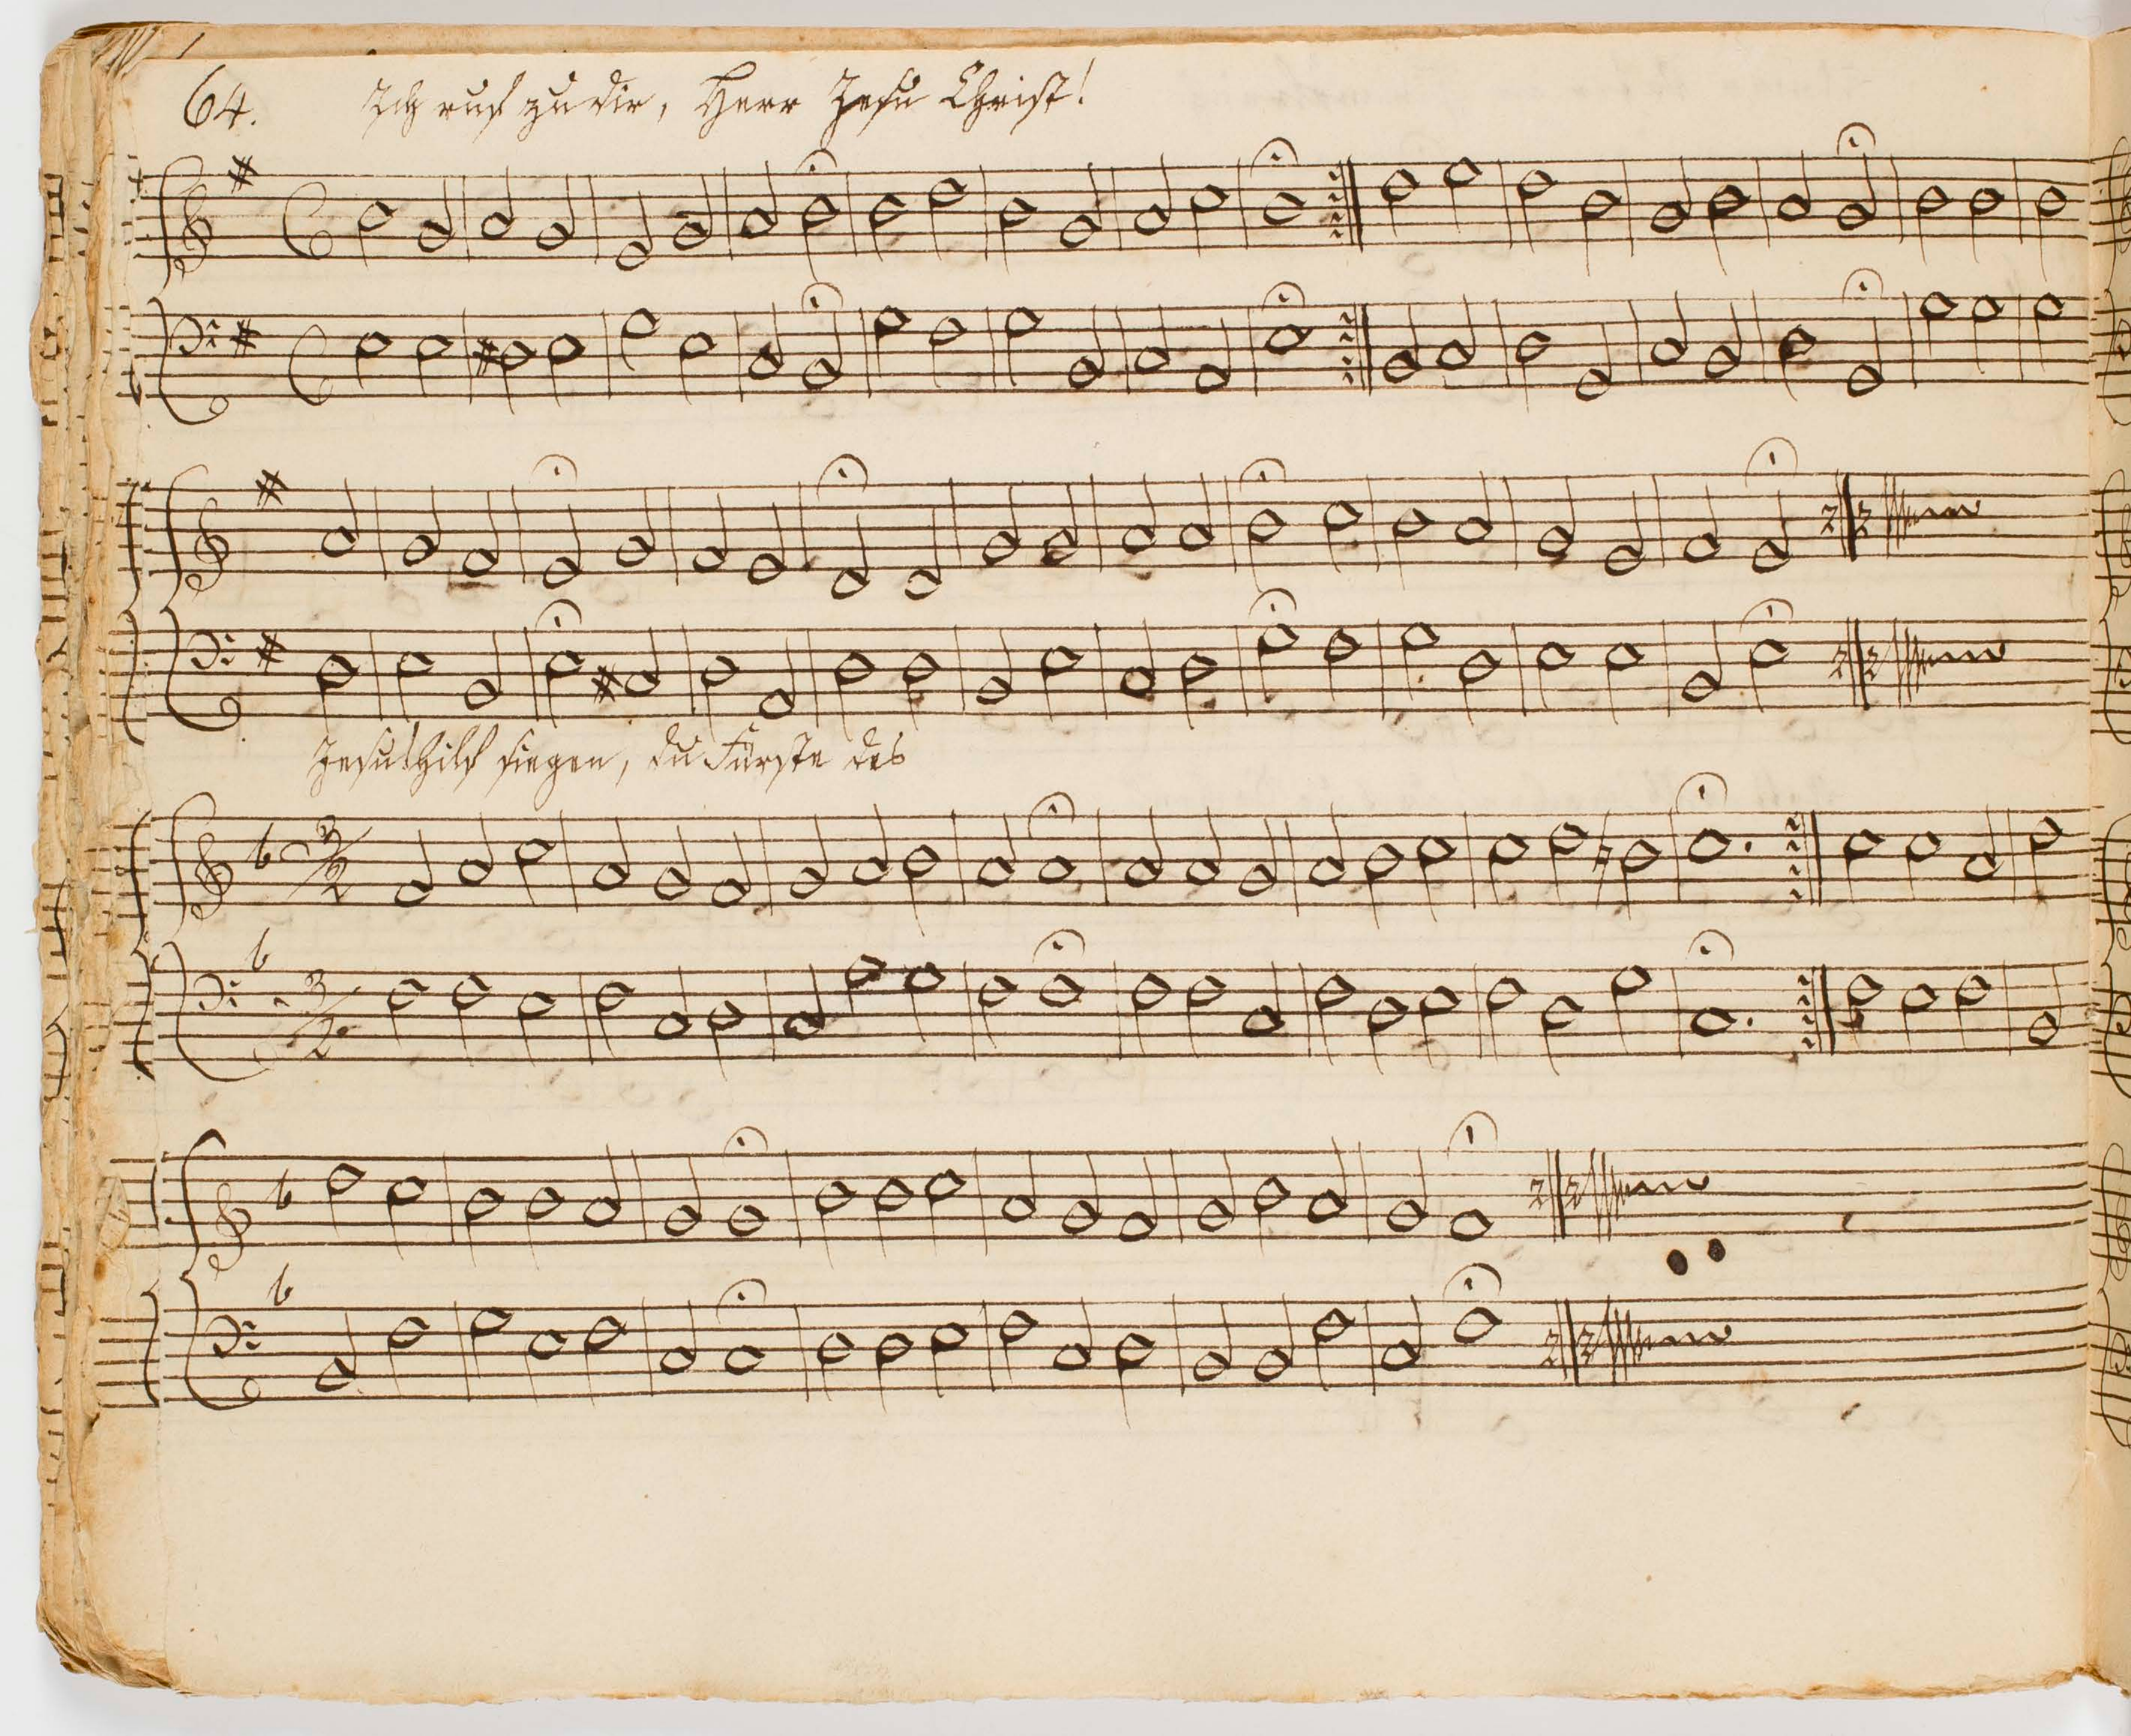 64. Ich ruf zu dir, Herr Jesu Christ!
Jesu! hilf siegen, du Fürste des